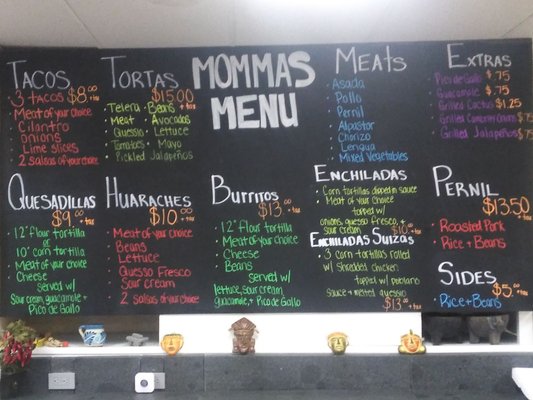 MOMMAS
MENU
TACOS
3 TACOS $8.00 + tax
Meat of your choice
Cilantro
onions
Lime slices
2 salsas of your choice
TORTAS
$15.00 + tax
Telera • Beans
Meat • Avocados
Quessio • Lettuce
Tomatoes • Mayo
Pickled Jalapeños
MEATS
Asada
Pollo
Pernil
Alpastor
Chorizo
Lengua
Mixed Vegetables
EXTRAS
Pico de Gallo $.75
Guacamole $.75
Grilled Cactus $1.25
Grilled Cameron Onions $.75
Grilled Jalapeños $.75
QUESADILLAS
$9.00 + tax
12" flour tortilla
or
10" corn tortilla
Meat of your choice
Cheese
served w/
Sour cream, guacamole +
Pico de Gallo
HUARACHES
$10.00 + tax
Meat of your choice
Beans
Lettuce
Quesso Fresco
Sour cream
2 salsas of your choice
BURRITOS
$13.00 + tax
12" flour tortilla
Meat of your choice
Cheese
Beans
served w/
lettuce, sour cream
guacamole, + Pico de Gallo
ENCHILADAS
Corn tortillas dipped in sauce
Meat of your choice
topped w/
onions, quesso fresco, +
sour cream $10.00 + tax
ENCHILADAS SUIZAS
3 corn tortillas rolled
w/ shredded chicken
topped w/
sauce + melted quesso
$13.00 + tax
PERNIL
$13.50 + tax
Roasted Pork
Rice + Beans
SIDES
$5.00 + tax
Rice + Beans